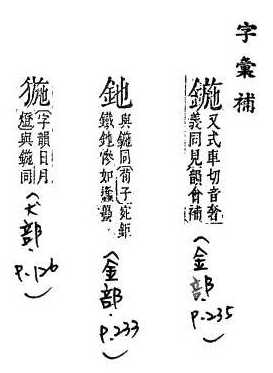 字彙補
鍦
又式車切音奢
義同見韻會補
(金部.P.235)
鉇
與鍦同荀子宛鉅
鐵鉇慘如蠭蠆
(金部.P.233)
字韻日月
與鍦同
(犬部.P.126)